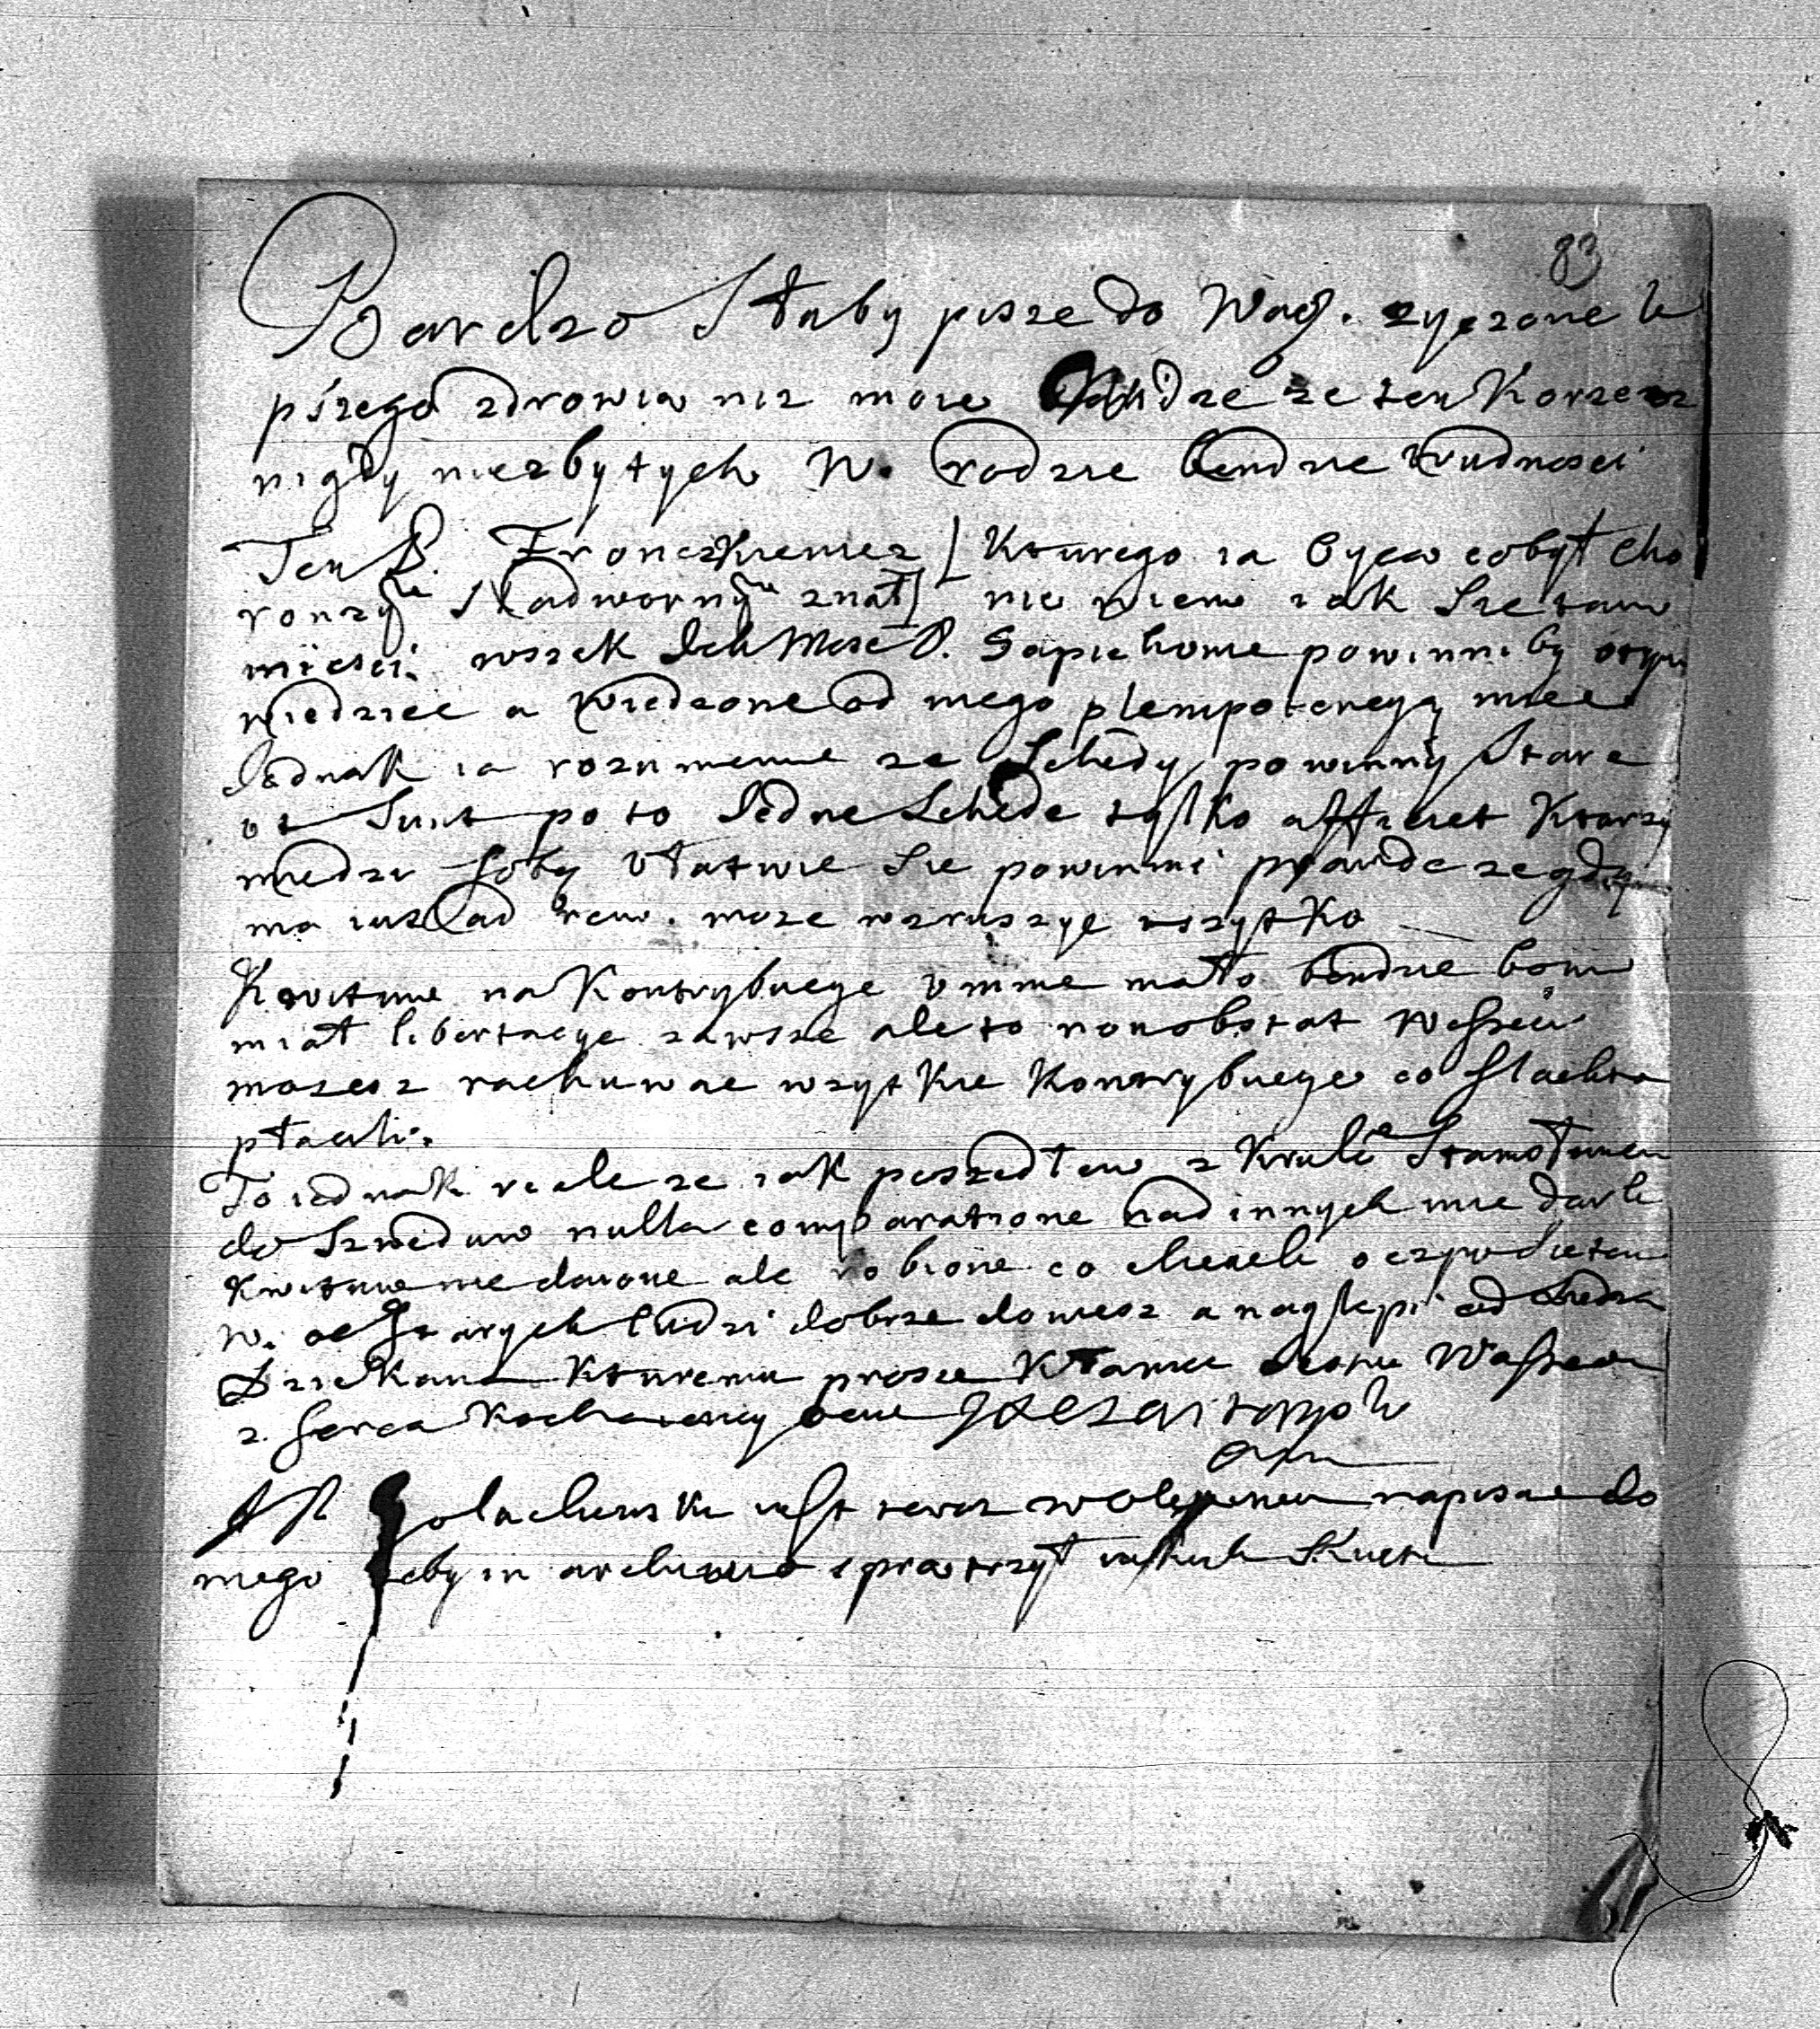 83
Bardzo Słaby pisze do Waci. zyczone le
pszego zdrowia niz moie Widze ze ten Korzec
nigdy niezbytych W. rodzie bendzie trudnosci
Ten P. Fronczkiewicz [Kturego ia Oyca cobył Cho
ronzym Nadwornym znał] nie wiem iak Sie tam
miesci. wszak Ich Mosc P. Sapiehowie powinni by otym
wiedziec a Wiedzone od mego plenipotencyą miec
Jednak ia rozumiem ze Schedy powinny Stare
ut Sunt po to Jedne Schede tylko afficiet Ktorzy
miedzi soby Ułatwic Sie powinni prawda ze gdy
ma iusz ad rem. moze wzruszyc wszytko
Kwitow na Kontrybucye u mnie mało bendzie bom
miał libertacye zawsze ale to non obstat Wassec
mozesz rachuwac wszytkie Kontrybucye co slachta
płacili.
To iednak reale ze iak poszedłem z Krulem Stanisławem
do Szweduw nulla comparatione nad innych mie darli
Kwituw nie dawane ale robione co chcieli o czym sie tam
W. od Starych ludzi dobrze dowiesz a naylepi od Xiedza
Dziekana Kturemu prosze Kłaniac iestem Wassec
z serca Kochaiący
JP. Golachowski iest teraz w Ołyce napisac do
mego zeby in archivio spatrzył iakich Kwitow